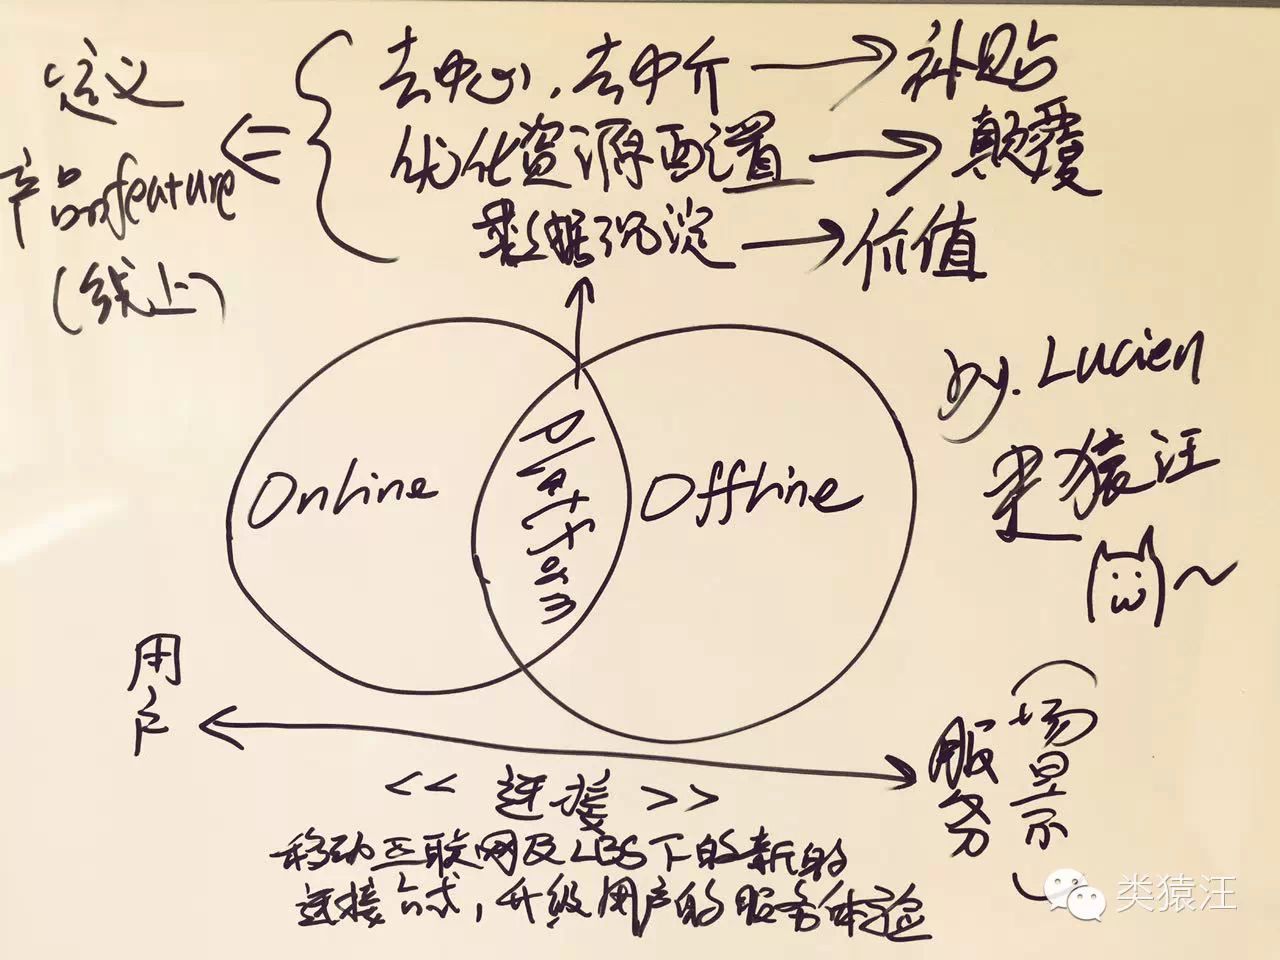 定义
产品feature
(线上)
去中心，去中介 → 补贴
优化资源配置 → 颠覆
数据沉淀 → 价值
Online
Platform
Offline
by. Lucien
类猿汪
用户
服务
(场景)
<< 连接 >>
移动互联网及LBS下的新的
连接方式，升级用户的服务体验
类猿汪